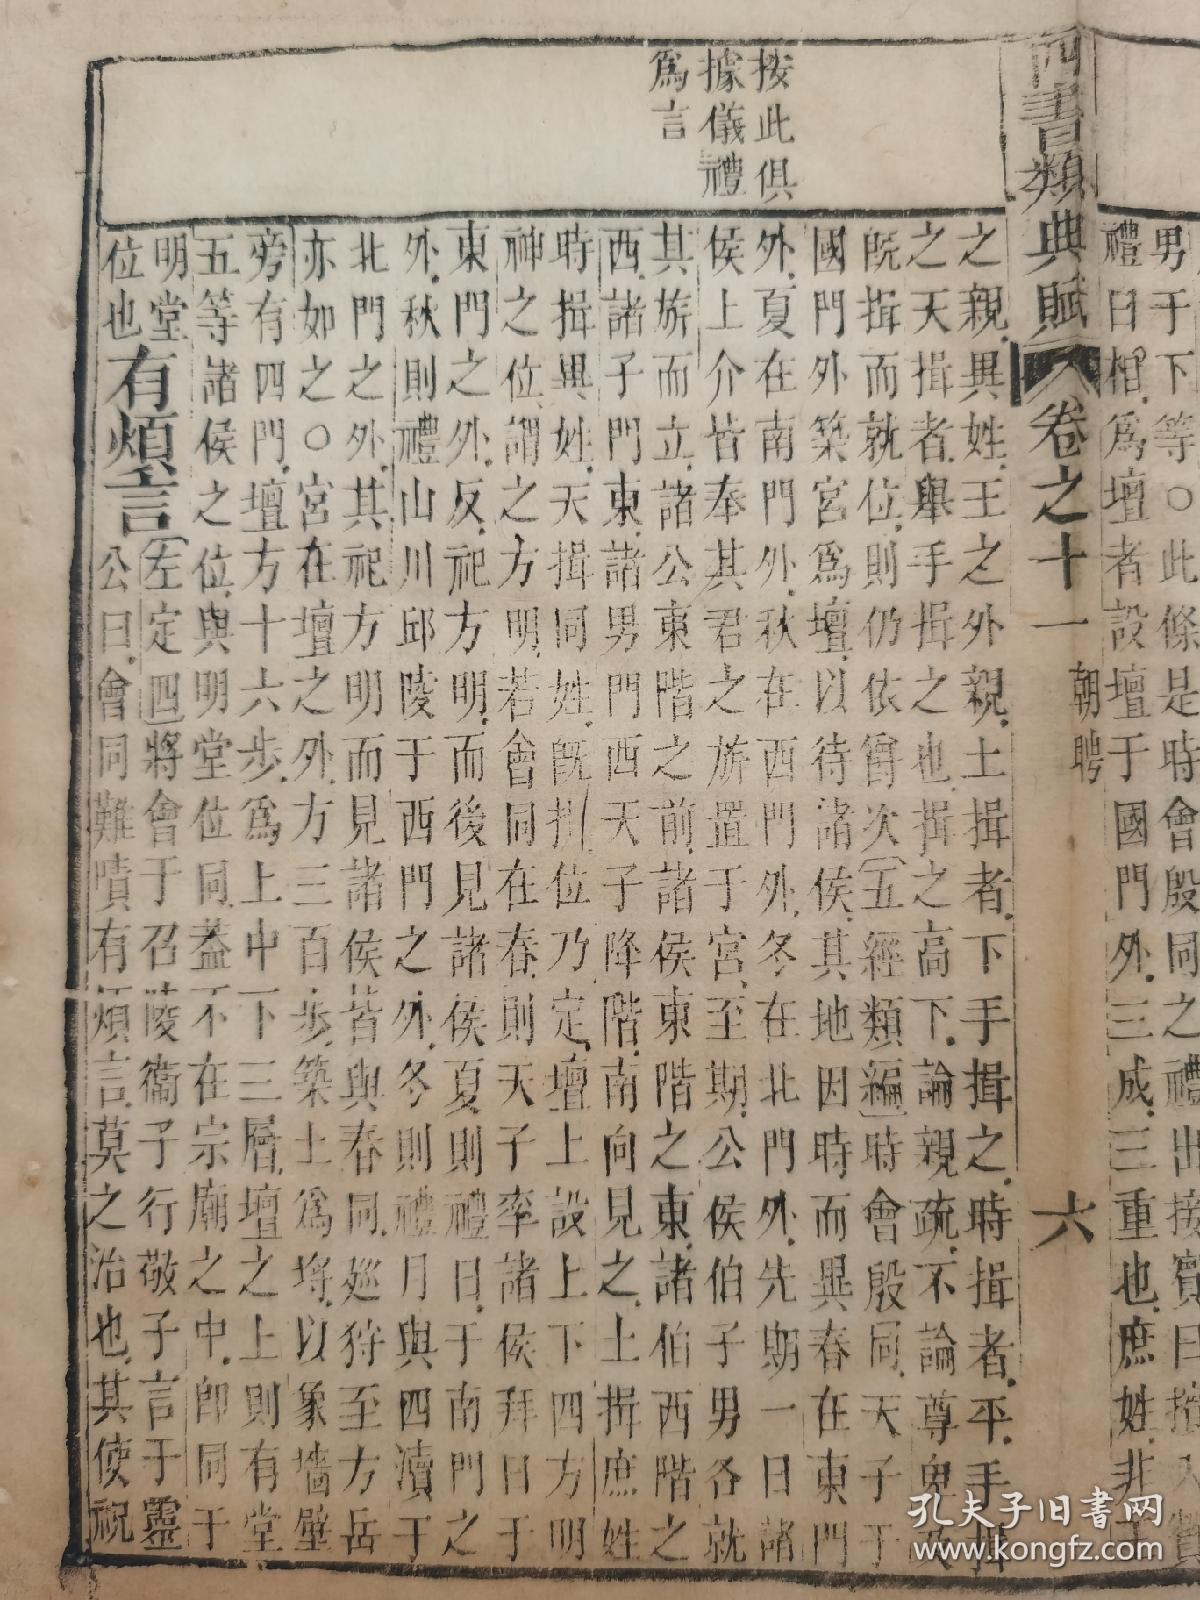 男于下等○此條是時會殷同之禮出接賓曰擯入贊
禮曰相爲壇者設壇于國門外三成三重也庶姓非王
四書類典賦 卷之十一 朝聘 六
按此俱
據儀禮
爲言
之親異姓王之外親土揖者下手揖之時揖者平手揖
之天揖者舉手揖之也揖之高下論親疏不論尊卑及
旣揖而就位則仍依爵次(五經類編)時會殷同天子于
國門外築宮爲壇以待諸侯其地因時而異春在東門
外夏在南門外秋在西門外冬在北門外先期一日諸
侯上介皆奉其君之旂置于宮至期公侯伯子男各就
其旂而立諸公東階之前諸侯東階之東諸伯西階之
西諸子門東諸男門西天子降階南向見之土揖庶姓
時揖異姓天揖同姓旣揖位乃定壇上設上下四方明
神之位謂之方明若會同在春則天子率諸侯拜日于
東門之外反祀方明而後見諸侯夏則禮日于南門之
外秋則禮山川邱陵于西門之外冬則禮月與四瀆于
北門之外其祀方明而見諸侯皆與春同廵狩至方岳
亦如之○宮在壇之外方三百步築土爲埒以象墻壁
旁有四門壇方十六步爲上中下三層壇之上則有堂
五等諸侯之位與明堂位同葢不在宗廟之中卽同于
明堂
位也
有煩言
(左定四)將會于召陵衞子行敬子言于靈
公曰會同難嘖有煩言莫之治也其使祝
孔夫子旧书网
www.kongfz.com